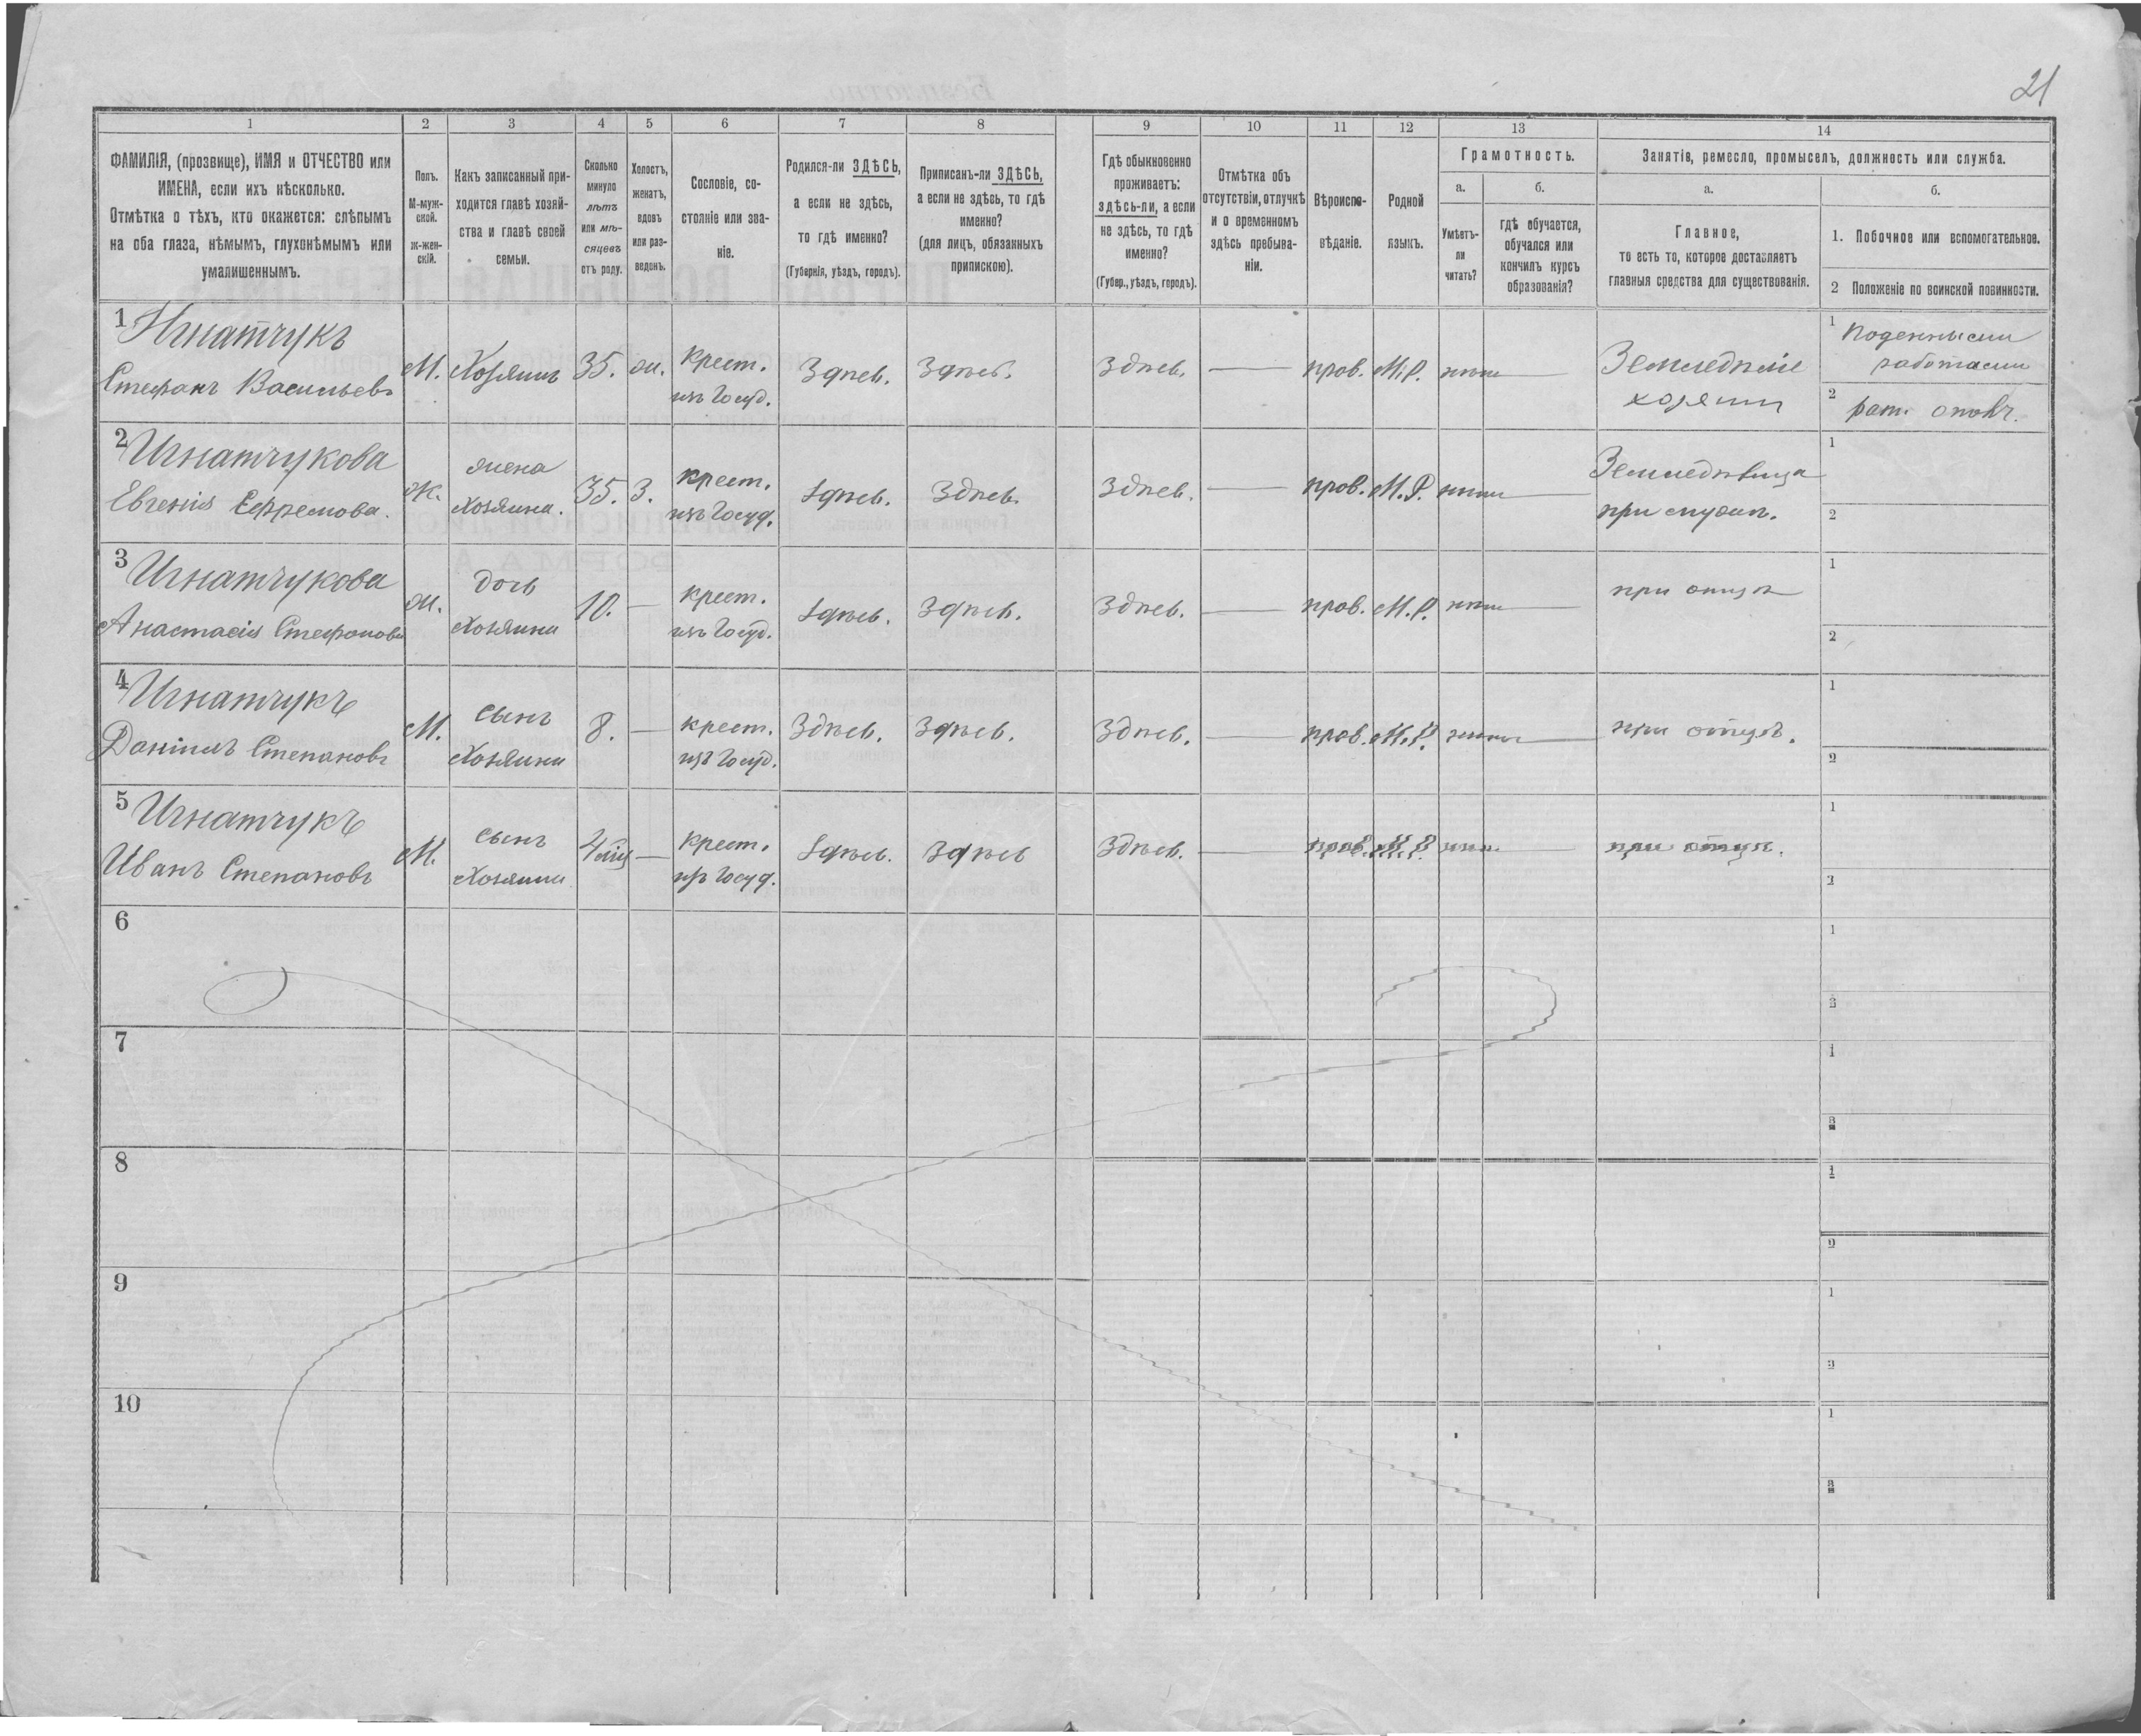 21
1 2 3 4 5 6 7 8 9 10 11 12 13 14
ФАМИЛІЯ, (прозвище), ИМЯ и ОТЧЕСТВО или
ИМЕНА, если ихъ нѣсколько.
Отмѣтка о тѣхъ, кто окажется: слѣпымъ
на оба глаза, нѣмымъ, глухонѣмымъ или
умалишеннымъ.
Полъ.
М-муж-
ской.
Ж-жен-
скій.
Какъ записанный при-
ходится главѣ хозяй-
ства и главѣ своей
семьи.
Сколько
минуло
лѣтъ
или мѣ-
сяцевъ
отъ роду.
Холостъ,
женатъ,
вдовъ
или раз-
веденъ.
Сословіе, со-
стояніе или зва-
ніе.
Родился-ли ЗДѢСЬ,
а если не здѣсь,
то гдѣ именно?
(Губернія, уѣздъ, городъ).
Приписанъ-ли ЗДѢСЬ,
а если не здѣсь, то гдѣ
именно?
(для лицъ, обязанныхъ
припискою).
Гдѣ обыкновенно
проживаетъ:
здѣсь-ли, а если
не здѣсь, то гдѣ
именно?
(Губер., уѣздъ, городъ).
Отмѣтка объ
отсутствіи, отлучкѣ
и о временномъ
здѣсь пребыва-
ніи.
Вѣроиспо-
вѣданіе.
Родной
языкъ.
Грамотность.
а.
Умѣетъ-
ли
читать?
б.
гдѣ обучается,
обучался или
кончилъ курсъ
образованія?
Занятіе, ремесло, промыселъ, должность или служба.
а.
Главное,
то есть то, которое доставляетъ
главныя средства для существованія.
б.
1. Побочное или вспомогательное.
2 Положеніе по воинской повинности.
1 Игнатчукъ
Стефанъ Васильевъ
М.
Хозяинъ
35.
ж.
крест.
изъ Госуд.
Здѣсь.
Здѣсь.
Здѣсь.
прав.
М.Р.
нѣтъ
Земледѣліе
хозяин
1 Поденными
работами
2 рат. ополч.
2 Игнатчукова
Евгенія Ефремова.
Ж.
жена
Хозяина.
35.
З.
крест.
изъ Госуд.
Здѣсь.
Здѣсь.
Здѣсь.
прав.
М.Р.
нѣтъ
при мужѣ.
1
2
3 Игнатчукова
Анастасія Стефанова
ж.
дочь
Хозяина
10.
крест.
изъ Госуд.
Здѣсь.
Здѣсь.
Здѣсь.
прав.
М.Р.
нѣтъ
при отцѣ
1
2
4 Игнатчукъ
Даніилъ Степановъ
М.
сынъ
Хозяина
8.
крест.
изъ Госуд.
Здѣсь.
Здѣсь.
Здѣсь.
прав.
М.Р.
нѣтъ
при отцѣ.
1
2
5 Игнатчукъ
Иванъ Степановъ
М.
сынъ
Хозяина
4 мѣц
крест.
изъ Госуд.
Здѣсь.
Здѣсь
Здѣсь.
прав.
М.Р.
нѣтъ
при отцѣ.
1
2
6
1
2
7
1
2
8
1
2
9
1
2
10
1
2